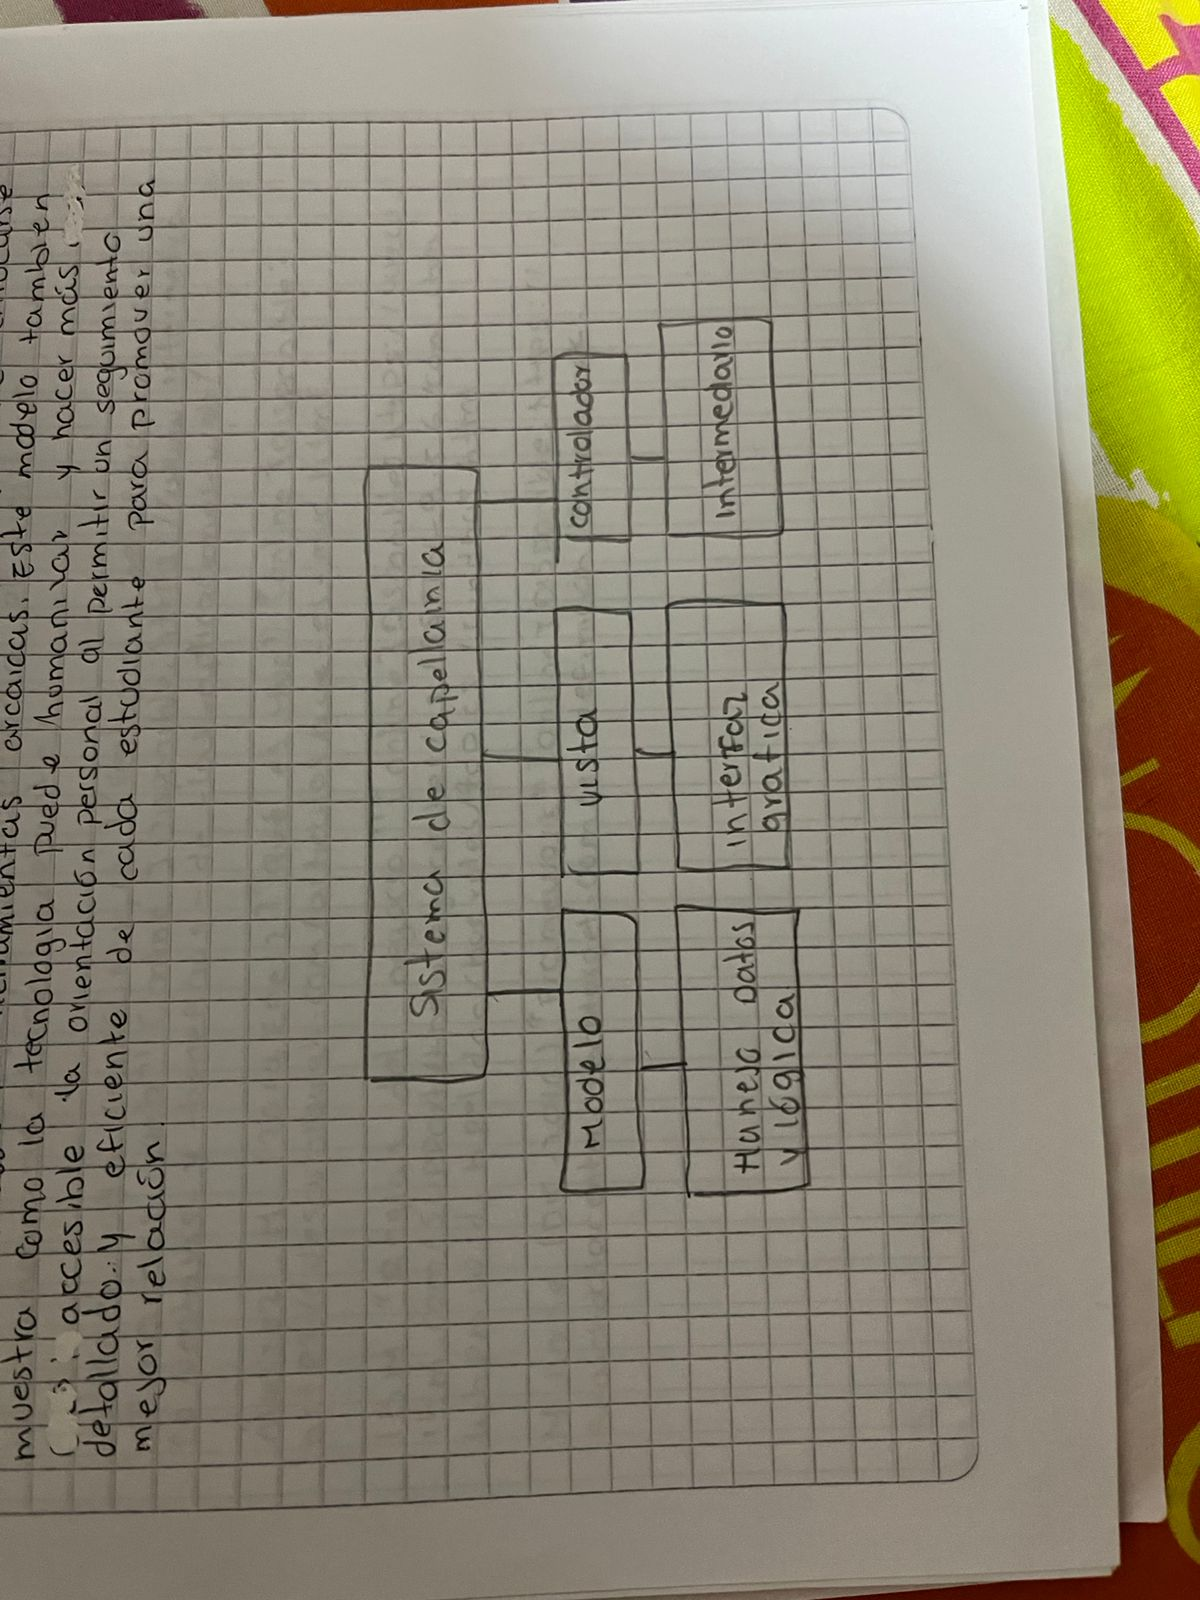 herramientas arcaicas. Este modelo tambien
muestra como la tecnologia puede humanizar y hacer más
accesible la orientación personal al permitir un seguimiento
detallado y eficiente de cada estudiante para promover una
mejor relación.
Sistema de capellainia
Modelo
vista
controlador
Manejo datos
y lógica
interfaz
grafica
Intermedario